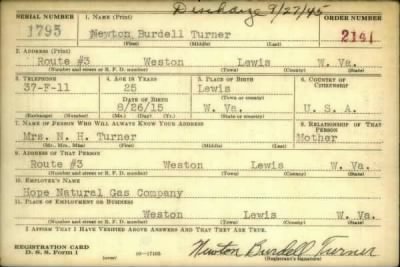 Discharge 9/27/45
SERIAL NUMBER 1. NAME (Print) ORDER NUMBER
1795 Newton Burdell Turner 2141
(First) (Middle) (Last)
2. ADDRESS (Print)
Route #3 Weston Lewis W. Va.
(Number and street or R. F. D. number) (Town) (County) (State)
3. TELEPHONE 4. AGE IN YEARS 5. PLACE OF BIRTH 6. COUNTRY OF CITIZENSHIP
37-F-11 25 Lewis
(Town or county)
DATE OF BIRTH
8/26/15 W. Va. U. S. A.
(Exchange) (Number) (Mo.) (Day) (Yr.) (State or country)
7. NAME OF PERSON WHO WILL ALWAYS KNOW YOUR ADDRESS 8. RELATIONSHIP OF THAT PERSON
Mrs. N. H. Turner Mother
(Mr., Mrs., Miss) (First) (Middle) (Last)
9. ADDRESS OF THAT PERSON
Route #3 Weston Lewis W. Va.
(Number and street or R. F. D. number) (Town) (County) (State)
10. EMPLOYER'S NAME
Hope Natural Gas Company
11. PLACE OF EMPLOYMENT OR BUSINESS
Weston Lewis W. Va.
(Number and street or R. F. D. number) (Town) (County) (State)
I AFFIRM THAT I HAVE VERIFIED ABOVE ANSWERS AND THAT THEY ARE TRUE.
REGISTRATION CARD Newton Burdell Turner
D. S. S. FORM 1 (over) 16-17105 (Registrant's signature)